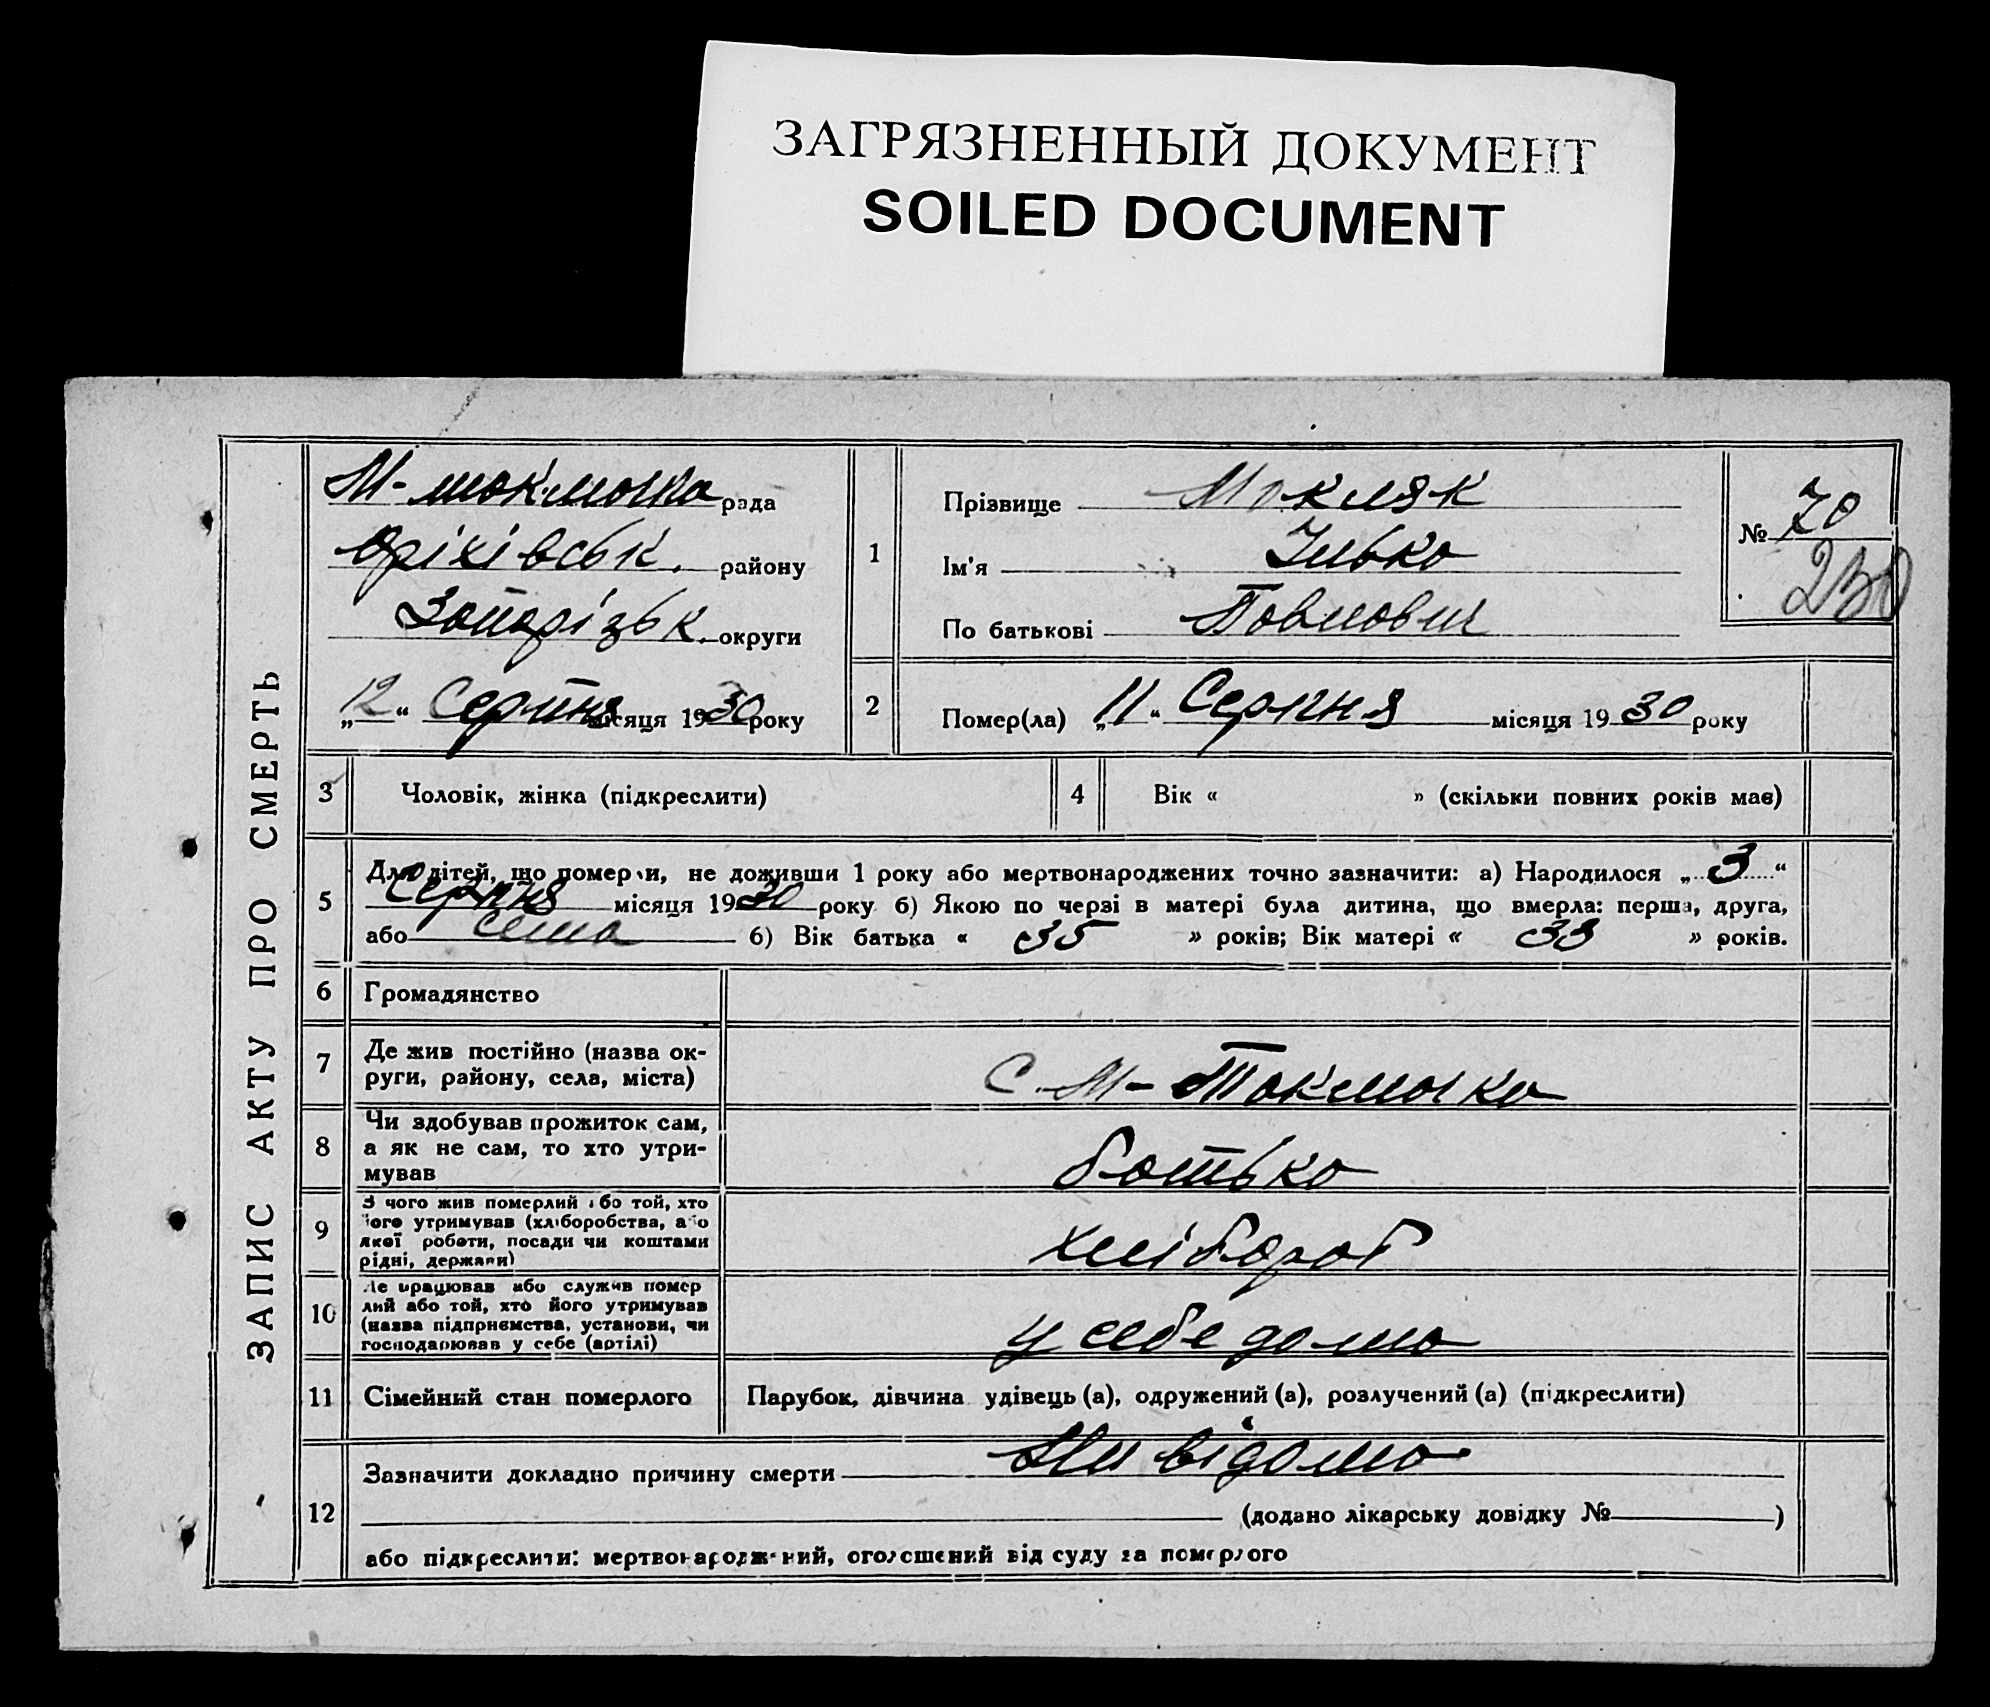 ЗАГРЯЗНЕННЫЙ ДОКУМЕНТ
SOILED DOCUMENT
ЗАПИС АКТУ ПРО СМЕРТЬ
М-токмачка рада
Оріхівськ. району
Запорізьк. округи
„12“ Серпня місяця 1930 року
1
Прізвище Мокляк
Ім'я Илько
По батькові Павлович
№ 70
230
2
Помер(ла) „11“ Серпня місяця 1930 року
3 Чоловік, жінка (підкреслити)
4 Вік « » (скільки повних років має)
5
Для дітей, що померли, не доживши 1 року або мертвонароджених точно зазначити: а) Народилося „3“
Серпня місяця 1930 року б) Якою по черзі в матері була дитина, що вмерла: перша, друга,
або сема б) Вік батька « 35 » років; Вік матері « 33 » років.
6 Громадянство
7 Де жив постійно (назва ок-
руги, району, села, міста)
С. М-Токмачка
8 Чи здобував прожиток сам,
а як не сам, то хто утри-
мував
батько
9 З чого жив померлий або той, хто
його утримував (хліборобства, або
якої роботи, посади чи коштами
рідні, держави)
хлібороб
10 Де працював або служив помер
лий або той, хто його утримував
(назва підприємства, установи, чи
господарював у себе (артілі)
у себе дома
11 Сімейний стан померлого
Парубок, дівчина удівець (а), одружений (а), розлучений (а) (підкреслити)
12
Зазначити докладно причину смерти Ни відомо
(додано лікарську довідку № )
або підкреслити: мертвонароджений, оголошений від суду за померлого